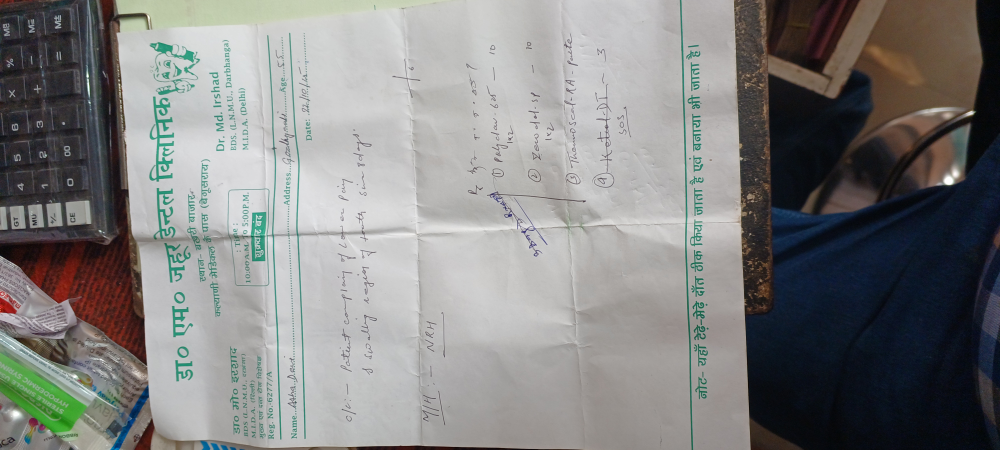 डा० एम० जहूर डेन्टल क्लिनिक
स्थान- बखरी बाजार
कल्याणी मेडिकल के पास (बेगूसराय)
डा० मो० इरशाद
BDS (L.N.M.U., दरभंगा)
M.I.D.A. (दिल्ली)
मुख एवं दन्त रोग विशेषज्ञ
Reg. No.:6277/A
: TIME :
10:00 A.M. TO 5:00 P.M.
शुक्रवार बंद
Dr. Md. Irshad
BDS. (L.N.M.U., Darbhanga)
M.I.D.A. (Delhi)
Name Asha Devi Address Age 55
Date:
C/o:- Patient complaing of Lower pain
& swelling region of tooth since days.
M/H:- NRH
Rx
① Polyclav. 625 - 10
1x2
② Zerodol-sp - 10
1x2
③ Thermoseal. RA - paste
④ Ketrol. DT - 3
SOS
नोट- यहाँ टेढ़े-मेढ़े दाँत ठीक किया जाता है एवं बनाया भी जाता है।
MU
GT
CE
0
00
1
2
3
4
5
6